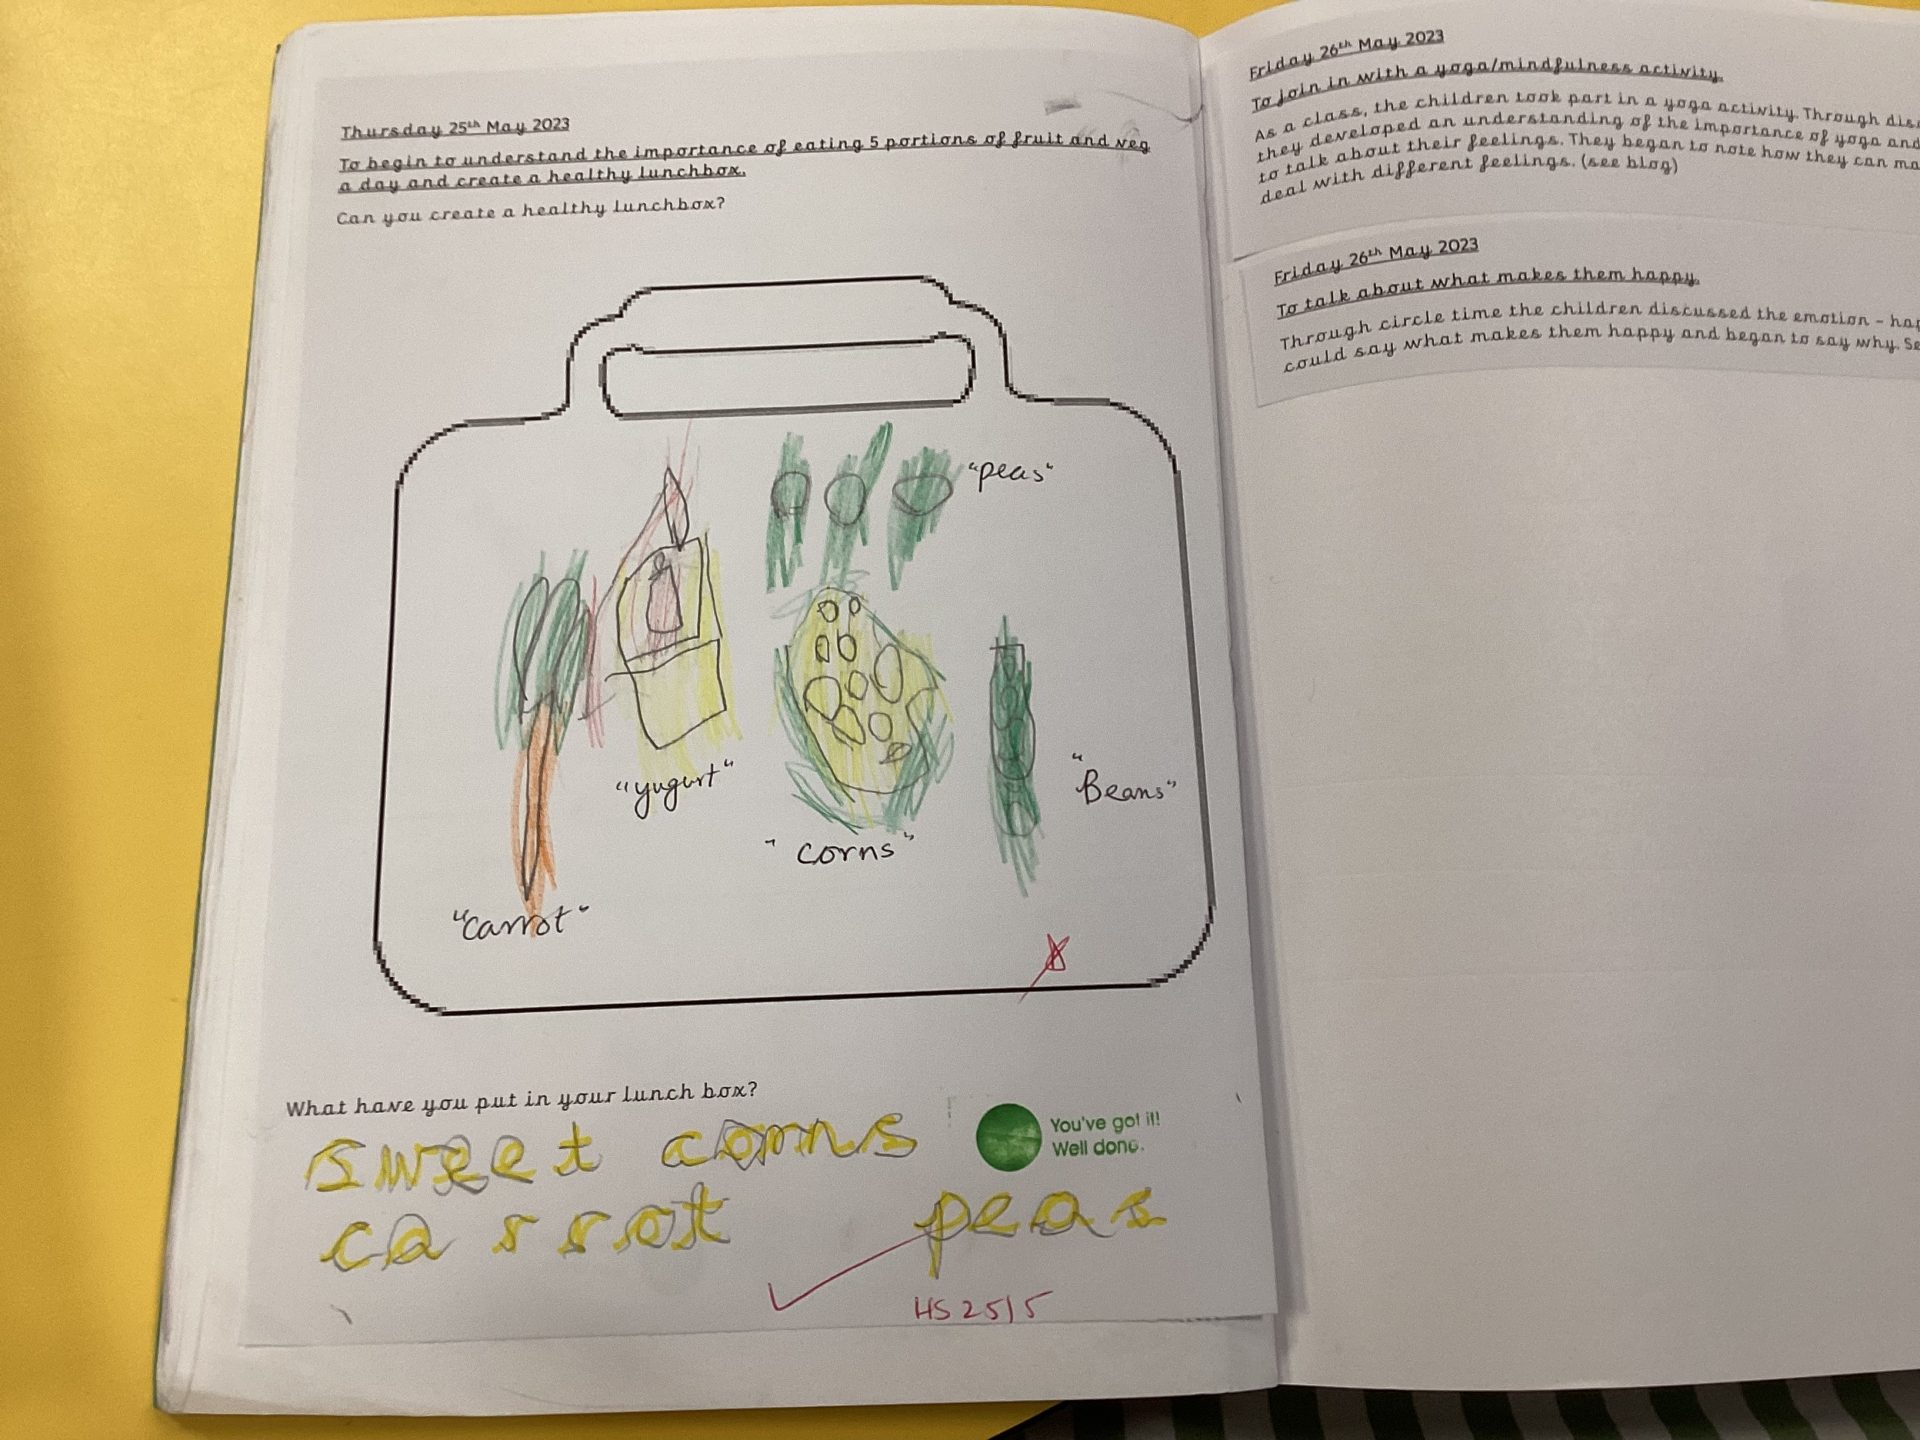 Thursday 25th May 2023
To begin to understand the importance of eating 5 portions of fruit and veg
a day and create a healthy lunchbox.
Can you create a healthy lunchbox?
"peas"
"yugurt"
"corns"
"Beans"
"carrot"
What have you put in your lunch box?
sweet corns
You've got it!
Well done.
carrot peas
HS 25/5
Friday 26th May 2023
To join in with a yoga/mindfulness activity.
As a class, the children took part in a yoga activity. Through
they developed an understanding of the importance of yoga and
to talk about their feelings. They began to note how they can
deal with different feelings. (see blog)
Friday 26th May 2023
To talk about what makes them happy.
Through circle time the children discussed the emotion –
could say what makes them happy and began to say why.